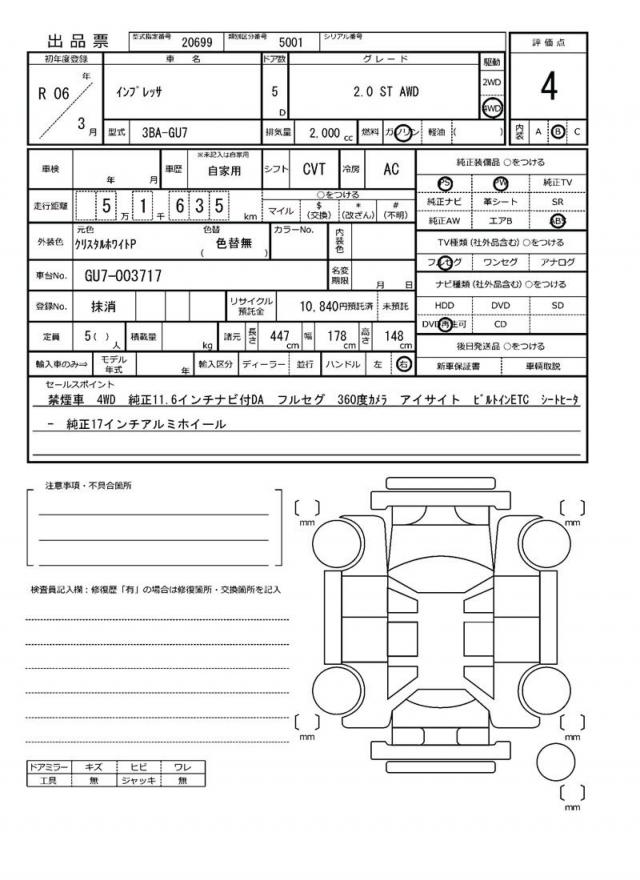 出品票 型式指定番号 20699 類別区分番号 5001 シリアル番号
評価点
4
初年度登録 車名 ドア数 グレード 駆動
R 06 年 3 月 インプレッサ 5 D 2.0 ST AWD 2WD 4WD
型式 3BA-GU7 排気量 2,000 cc 燃料 ガソリン 軽油 ( ) 内装 A B C
車検 年 月 車歴 ※未記入は自家用 自家用 シフト CVT 冷房 AC
走行距離 5 万 1 千 6 3 5 km ○をつける マイル $ (交換) * (改ざん) # (不明)
外装色 元色 クリスタルホワイトP 色替 ( 色替無 ) カラーNo. 内装色
車台No. GU7-003717 名変期限 月 日
登録No. 抹消 リサイクル預託金 10,840円預託済 未預託
定員 5( ) 人 積載量 kg 諸元 長さ 447 cm 幅 178 cm 高さ 148 cm
輸入車のみ⇒ モデル年式 年 輸入区分 ディーラー 並行 ハンドル 左 右
純正装備品 ○をつける
PS PW 純正TV
純正ナビ 革シート SR
純正AW エアB ABS
TV種類 (社外品含む) ○をつける
フルセグ ワンセグ アナログ
ナビ種類 (社外品含む) ○をつける
HDD DVD SD
DVD再生可 CD
後日発送品 ○をつける
新車保証書 車輌取説
セールスポイント
禁煙車 4WD 純正11.6インチナビ付DA フルセグ 360度カメラ アイサイト ビルトインETC シートヒータ
- 純正17インチアルミホイール
注意事項・不具合箇所
検査員記入欄：修復歴「有」の場合は修復箇所・交換箇所を記入
mm mm
mm mm
mm
ドアミラー キズ ヒビ ワレ
工具 無 ジャッキ 無